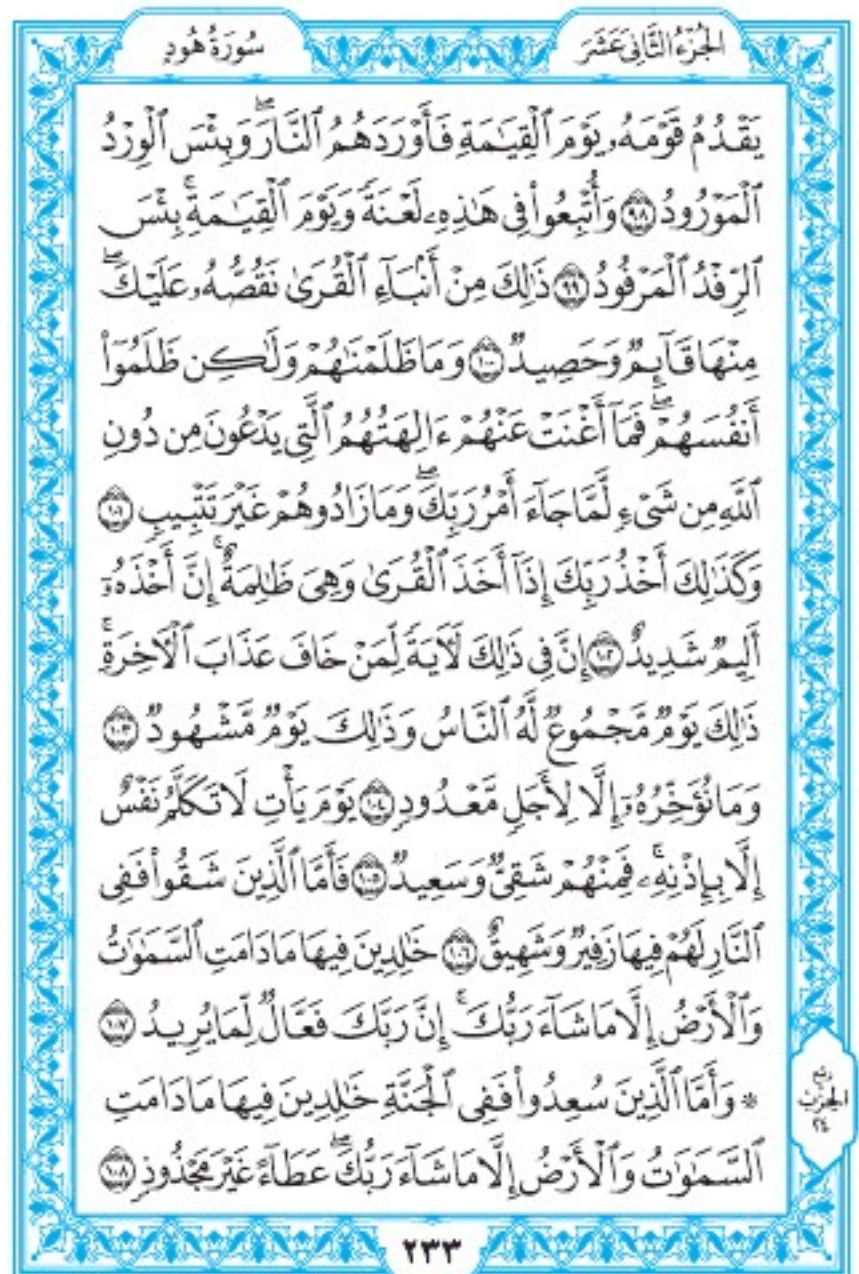 الجُزْءُ الثَّانِي عَشَرَ
سُورَةُ هُودٍ
يَقْدُمُ قَوْمَهُۥ يَوْمَ ٱلْقِيَـٰمَةِ فَأَوْرَدَهُمُ ٱلنَّارَۖ وَبِئْسَ ٱلْوِرْدُ
ٱلْمَوْرُودُ ٩٨ وَأُتْبِعُوا۟ فِى هَـٰذِهِۦ لَعْنَةً وَيَوْمَ ٱلْقِيَـٰمَةِۚ بِئْسَ
ٱلرِّفْدُ ٱلْمَرْفُودُ ٩٩ ذَٰلِكَ مِنْ أَنۢبَآءِ ٱلْقُرَىٰ نَقُصُّهُۥ عَلَيْكَۖ
مِنْهَا قَآئِمٌ وَحَصِيدٌ ١٠٠ وَمَا ظَلَمْنَـٰهُمْ وَلَـٰكِن ظَلَمُوٓا۟
أَنفُسَهُمْۖ فَمَآ أَغْنَتْ عَنْهُمْ ءَالِهَتُهُمُ ٱلَّتِى يَدْعُونَ مِن دُونِ
ٱللَّهِ مِن شَىْءٍ لَّمَّا جَآءَ أَمْرُ رَبِّكَۖ وَمَا زَادُوهُمْ غَيْرَ تَتْبِيبٍ ١٠١
وَكَذَٰلِكَ أَخْذُ رَبِّكَ إِذَآ أَخَذَ ٱلْقُرَىٰ وَهِىَ ظَـٰلِمَةٌۚ إِنَّ أَخْذَهُۥٓ
أَلِيمٌ شَدِيدٌ ١٠٢ إِنَّ فِى ذَٰلِكَ لَـَٔايَةً لِّمَنْ خَافَ عَذَابَ ٱلْـَٔاخِرَةِۚ
ذَٰلِكَ يَوْمٌ مَّجْمُوعٌ لَّهُ ٱلنَّاسُ وَذَٰلِكَ يَوْمٌ مَّشْهُودٌ ١٠٣
وَمَا نُؤَخِّرُهُۥٓ إِلَّا لِأَجَلٍ مَّعْدُودٍ ١٠٤ يَوْمَ يَأْتِ لَا تَكَلَّمُ نَفْسٌ
إِلَّا بِإِذْنِهِۦۚ فَمِنْهُمْ شَقِىٌّ وَسَعِيدٌ ١٠٥ فَأَمَّا ٱلَّذِينَ شَقُوا۟ فَفِى
ٱلنَّارِ لَهُمْ فِيهَا زَفِيرٌ وَشَهِيقٌ ١٠٦ خَـٰلِدِينَ فِيهَا مَا دَامَتِ ٱلسَّمَـٰوَٰتُ
وَٱلْأَرْضُ إِلَّا مَا شَآءَ رَبُّكَۚ إِنَّ رَبَّكَ فَعَّالٌ لِّمَا يُرِيدُ ١٠٧
۞ وَأَمَّا ٱلَّذِينَ سُعِدُوا۟ فَفِى ٱلْجَنَّةِ خَـٰلِدِينَ فِيهَا مَا دَامَتِ
ٱلسَّمَـٰوَٰتُ وَٱلْأَرْضُ إِلَّا مَا شَآءَ رَبُّكَۖ عَطَآءً غَيْرَ مَجْذُوذٍ ١٠٨
رُبْع
الحِزْب
٢٤
٢٣٣